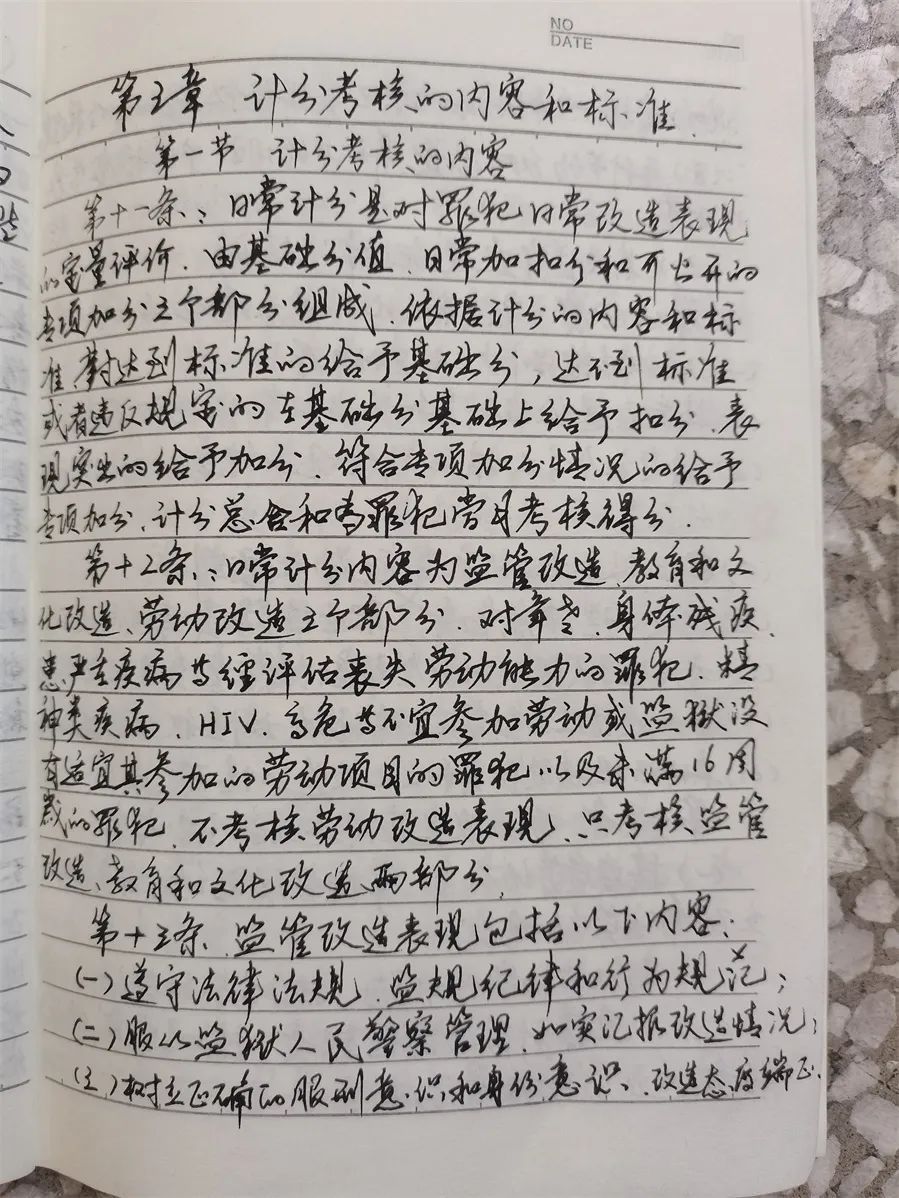 NO
DATE
第三章 计分考核的内容和标准.
第一节 计分考核的内容
第十一条:日常计分是对罪犯日常改造表现
的定量评价.由基础分值.日常加扣分和
专项加分三个部分组成.依据计分的内容和标
准,對达到标准的给予基础分,达不到标准
或者违反规定的在基础分基础上给予扣分.表
现突出的给予加分.符合专项加分情况的给予
专项加分,计分总和为罪犯当月考核得分.
第十二条:日常计分内容为监管改造、教育和文
化改造、劳动改造三个部分.对年老、身体残疾、
患严重疾病等经评估丧失劳动能力的罪犯.精
神类疾病、HIV、高危等不宜参加劳动或监狱没
有适宜其参加的劳动项目的罪犯以及未满16周
岁的罪犯.不考核劳动改造表现、只考核监管
改造、教育和文化改造两部分.
第十三条.监管改造表现包括以下内容:
(一)遵守法律法规.监规纪律和行为规范;
(二)服从监狱人民警察管理.如实汇报改造情况;
(三)树立正确的服刑意识和身份意识、改造态度端正.